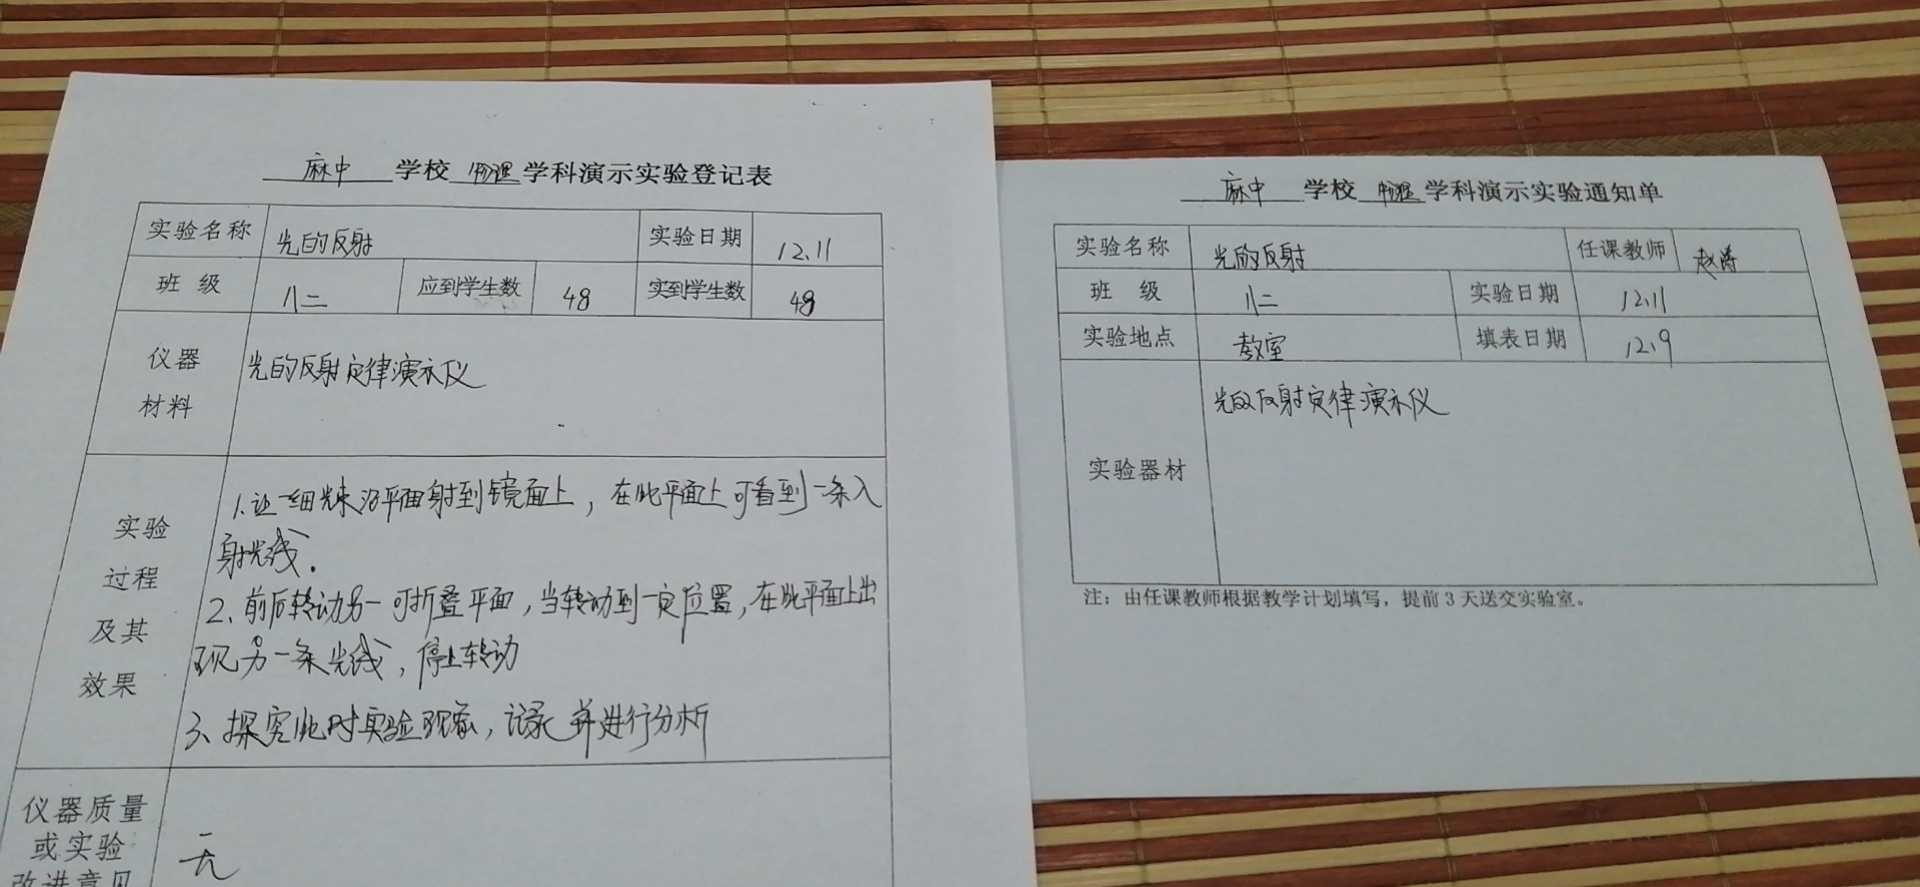 麻中 学校 物理 学科演示实验登记表
实验名称 光的反射 实验日期 12.11
班 级 八二 应到学生数 48 实到学生数 48
仪器
材料
光的反射定律演示仪
实验
过程
及其
效果
1.让一细光束沿平面射到镜面上，在此平面上可看到一条入
射光线.
2、前后转动另一可折叠平面，当转动到一定位置，在此平面上出
现另一条光线，停止转动
3、探究此时实验现象，记录并进行分析
仪器质量
或实验
改进意见
无
麻中 学校 物理 学科演示实验通知单
实验名称 光的反射 任课教师 赵涛
班 级 八二 实验日期 12.11
实验地点 教室 填表日期 12.9
实验器材
光的反射定律演示仪
注：由任课教师根据教学计划填写，提前 3 天送交实验室。